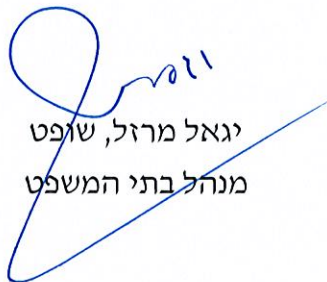 יגאל מרזל, שופט
מנהל בתי המשפט